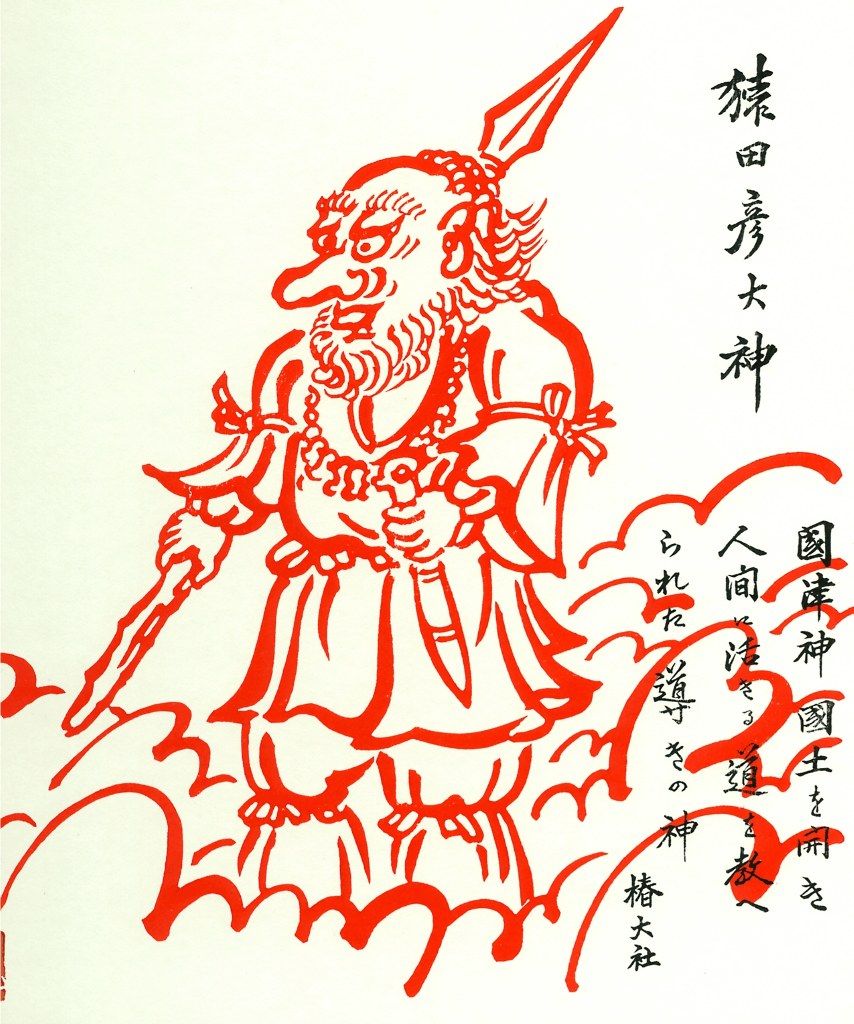 猿田彦大神
國津神 國土を開き
人間に活きる道を教へ
られた 道せきの神
椿大社